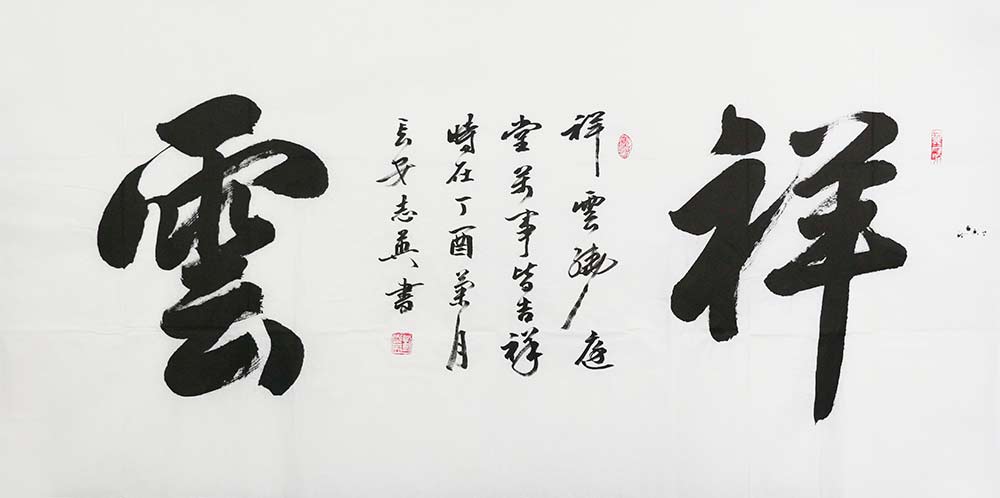 祥
祥雲繞庭
堂萬事皆吉祥
時在丁酉菊月
長安志英書
雲